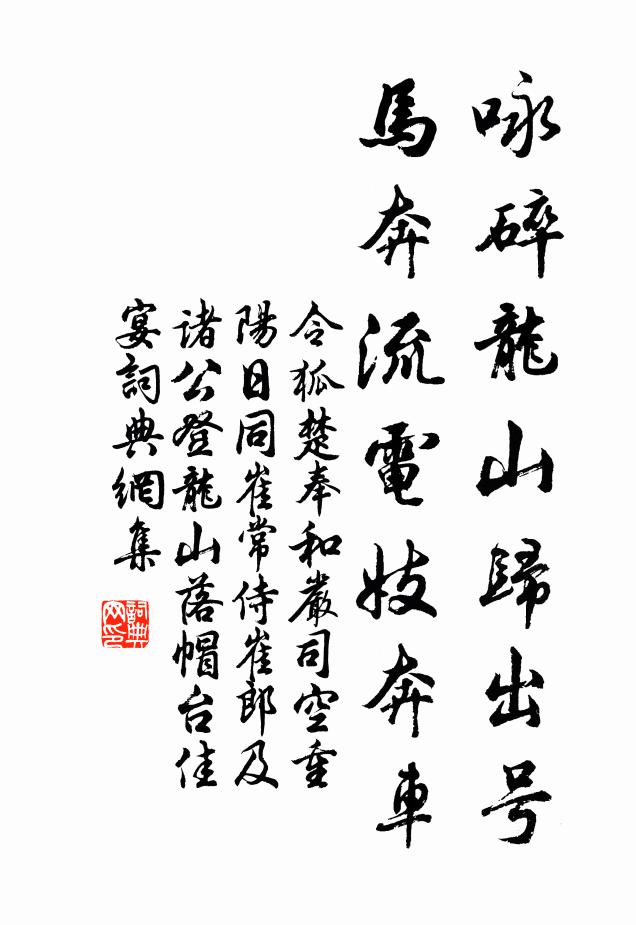 咏碎龍山歸出号
馬奔流電妓奔車
令狐楚奉和嚴司空重
陽日同崔常侍崔郎及
诸公登龍山落帽台佳
宴詞典網集
詞典网印